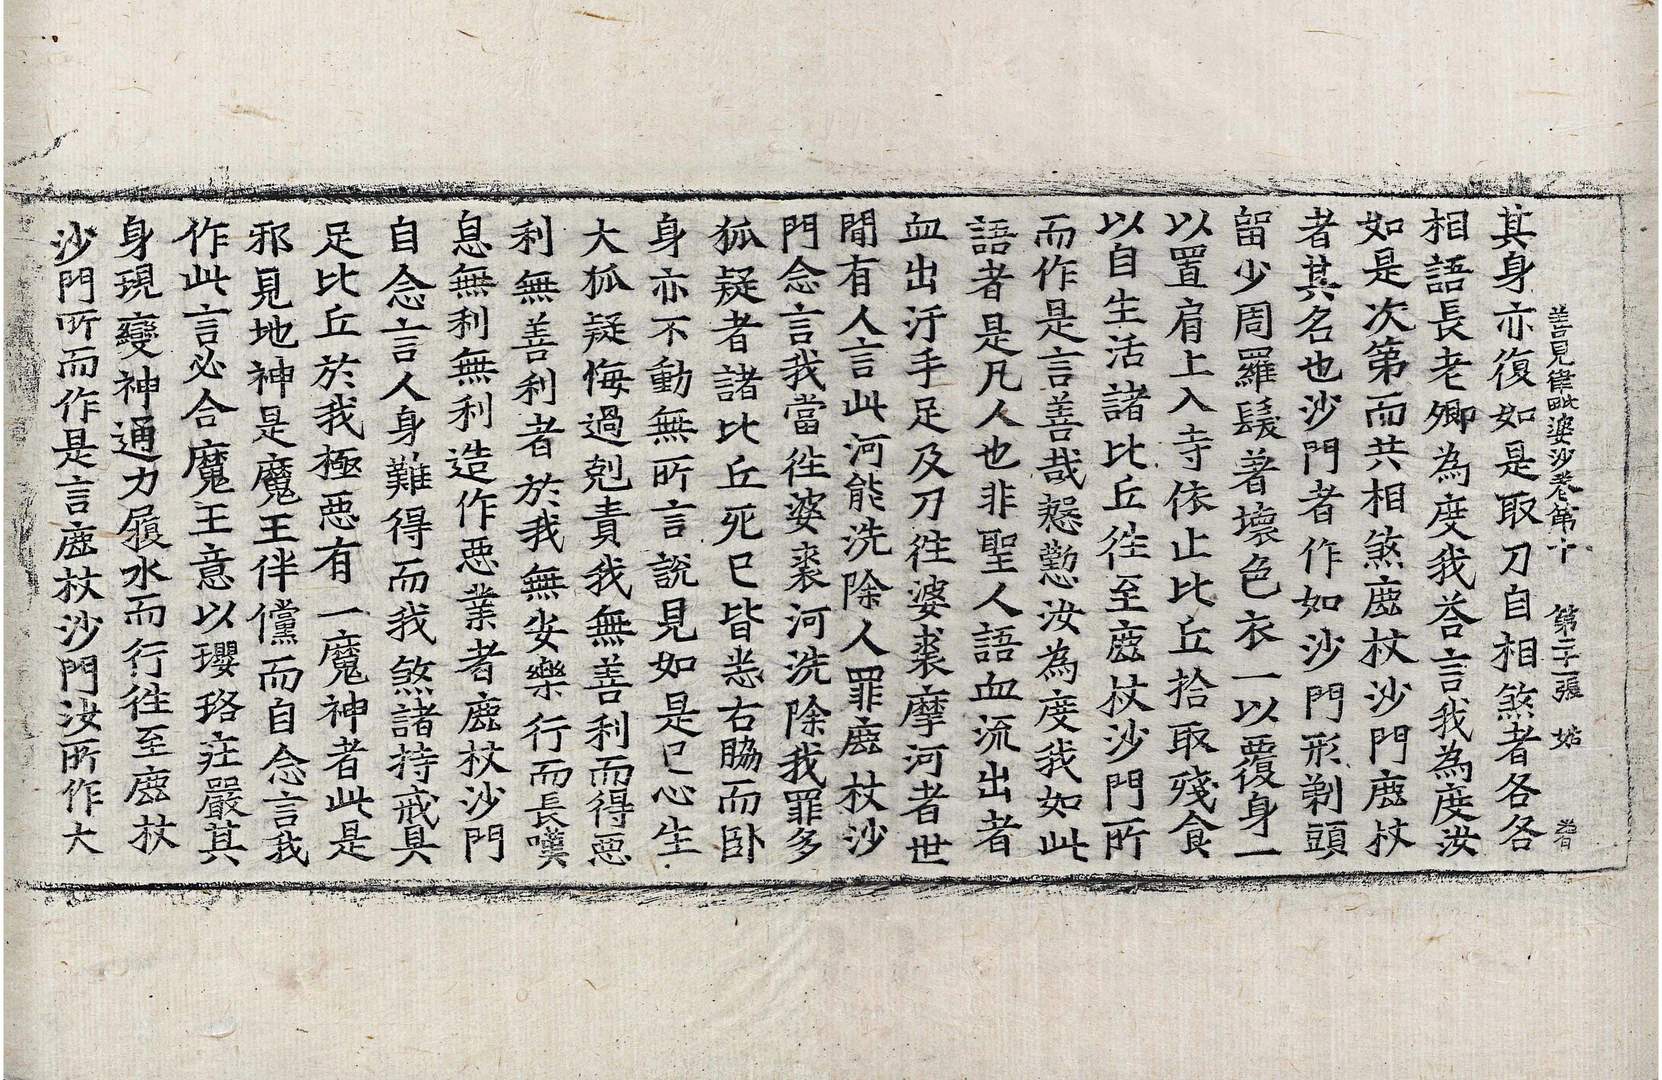 善見律毗婆沙卷第十　第二十張　姑
其身亦復如是取刀自相煞者各各
相語長老卿為度我荅言我為度汝
如是次第而共相煞鹿杖沙門鹿杖
者其名也沙門者作如沙門形剃頭
留少周羅髮著壞色衣一以覆身一
以置肩上入寺依止比丘拾取殘食
以自生活諸比丘往至鹿杖沙門所
而作是言善哉慇懃汝為度我如此
語者是凡人也非聖人語血流出者
血出汙手足及刀往婆裘摩河者世
間有人言此河能洗除人罪鹿杖沙
門念言我當往婆裘河洗除我罪多
狐疑者諸比丘死已皆悉右脇而卧
身亦不動無所言說見如是已心生
大狐疑悔過剋責我無善利而得惡
利無善利者於我無安樂行而長嘆
息無利無利造作惡業者鹿杖沙門
自念言人身難得而我煞諸持戒具
足比丘於我極惡有一魔神者此是
邪見地神是魔王伴儻而自念言我
作此言必合魔王意以瓔珞莊嚴其
身現變神通力履水而行往至鹿杖
沙門所而作是言鹿杖沙門汝所作大